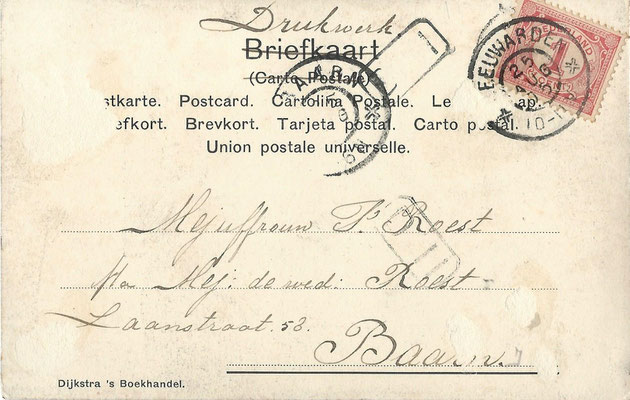 Drukwerk
Briefkaart
(Carte Postale)
stkarte. Postcard. Cartolina Postale. Le ap.
efkort. Brevkort. Tarjeta postal. Carto postal.
Union postale universelle.
BAARN
LEEUWARDEN
10-11
NEDERLAND
1
1
Mejuffrouw P. Roest
p/a Mej: de wed: Roest
Laanstraat 53.
Baarn.
Dijkstra 's Boekhandel.